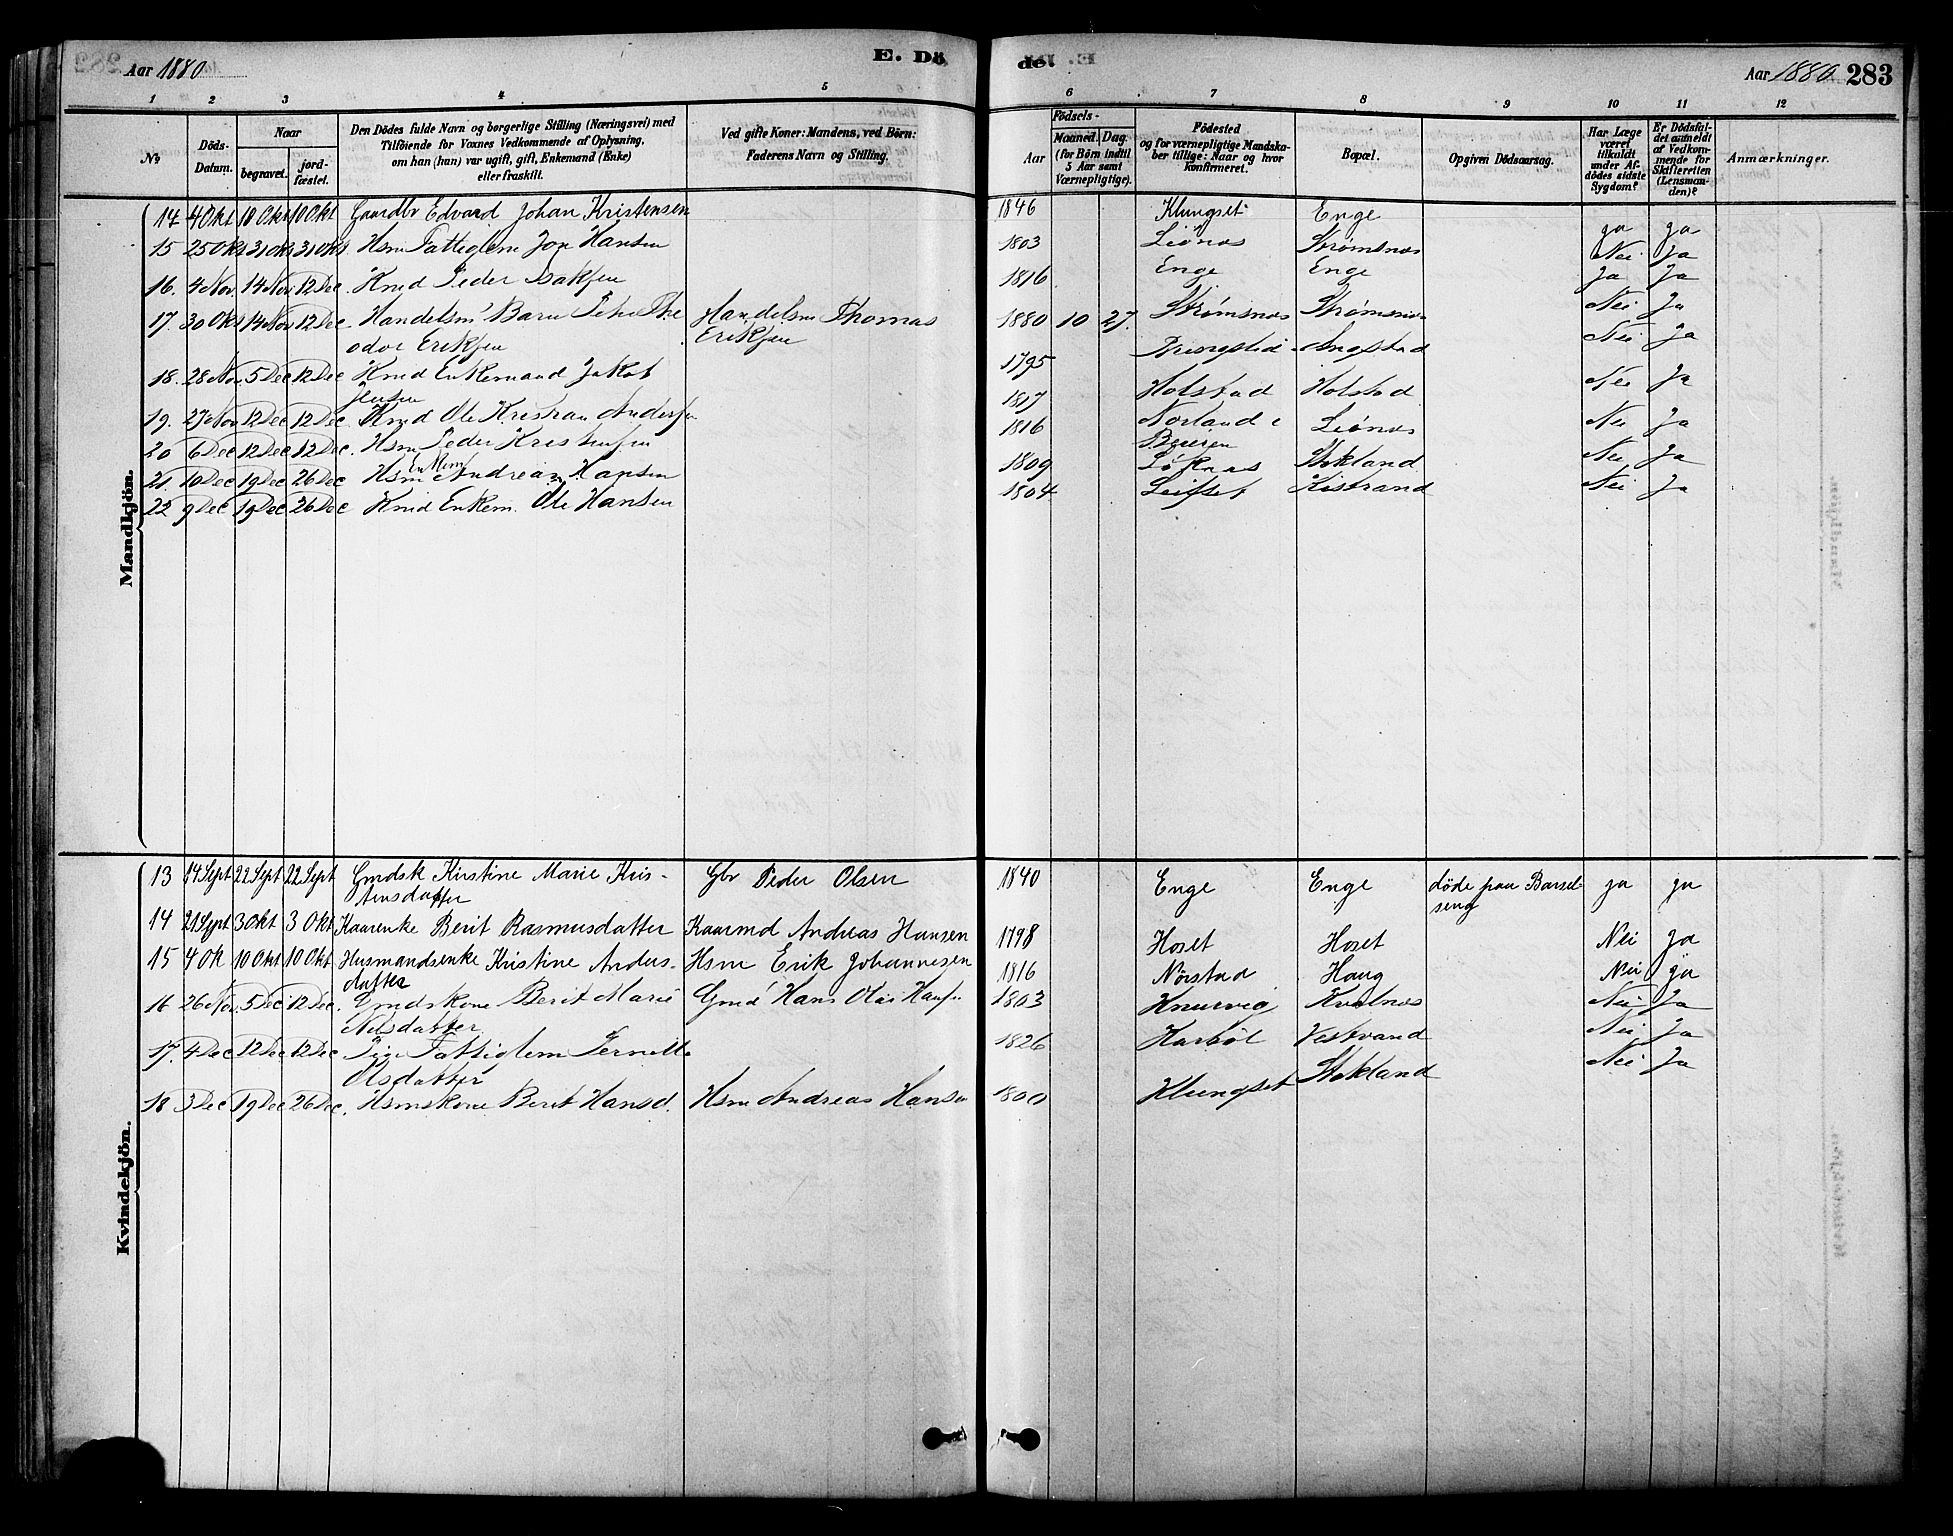 Aar 1880 E. Dö
de. Aar 1880 283
1 2 3 4 5 6 7 8 9 10 11 12
No
Döds-Datum.
Naar begravet. jord-fæstet.
Den Dödes fulde Navn og borgerlige Stilling (Næringsvei) med
Tilföiende for Voxnes Vedkommende af Oplysning,
om han (hun) var ugift, gift, Enkemand (Enke)
eller fraskilt.
Ved gifte Koner: Mandens, ved Börn:
Faderens Navn og Stilling.
Födsels-
Aar Maaned. Dag.
(for Börn indtil
5 Aar samt
Værnepligtige).
Födested
og for værnepligtige Mandska-
ber tillige: Naar og hvor
konfirmeret.
Bopæl.
Opgiven Dödsaarsag.
Har Læge
været
tilkaldt
under Af-
dödes sidste
Sygdom?
Er Dödsfal-
det anmeldt
af Vedkom-
mende for
Skifteretten
(Lensman-
den)?
Anmærkninger.
Mandkjön.
14 4 Okt 10 Okt 10 Okt Gaardbr Edvard Johan Kristensen 1846 Klungset Enge ja ja
15 25 Okt 31 Okt 31 Okt Hsm Fattiglem Jon Hansen 1803 Leönes Strømsnes Nei Ja
16. 4 Nov. 14 Nov 12 Dec. Kmd Peder Isaksen 1816 Enge Enge Ja Ja
17. 30 Okt 14 Nov 12 Dec. Handelsm' Barn Peter The Handelsm Thomas 1880 10 27. Strømsnes Strømsnes Nei Ja
odor Eriksen Eriksen
18. 28 Nov 5 Dec 12 Dec. Kmd Enkemand Jakob 1795 Angstad Nei Ja
Jensen
19. 27 Nov 12 Dec 12 Dec. Kmd Ole Kristian Anders 1817 Holstad Holstad Nei Ja
20 6 Dec 12 Dec 12 Dec. Hsm Peder Kristensen 1816 Norland i Leönes Nei Ja
Beieren
21. 10 Dec 19 Dec 26 Dec Hsm Enkem Andreas Hansen 1809 Løknes Stokland Nei Ja
22 9 Dec 19 Dec 26 Dec Kmd Enkem. Ole Hansen 1804 Leifset Kistrand Nei Ja
Kvindekjön.
13 14 Sept 22 Sept 22 Sept Gmdsk Kirstine Marie Kris- Gbr Peder Olsen 1840 Enge Enge döde paa Barsel ja ja
tensdatter seng
14 21 Sept 3 Okt 3 Okt Kaarenke Berit Rasmusdatter Kaarmd Andreas Hansen 1798 Hoset Hoset Nei Ja
15 4 Ok 10 Okt 10 Okt Husmandsenke Kristine Anders- Hsm Erik Johannesen 1816 Nörstad Haug Nei ja
datter
16 26 Nov. 5 Dec 12 Dec. Gmdskone Berit Marie Gmd Hans Olai Hans 1803 Knurvig Kvelnes Nei Ja
Nilsdatter
17. 4 Dec 12 Dec 12 Dec Pige Fattiglem Pernelle 1826 Harbøl Vestvand Nei Ja
Olsdatter
18 3 Dec 19 Dec 26 Dec. Hsmskone Berit Hansd. Hsm Andreas Hansen 1800 Klungset Stokland Nei Ja